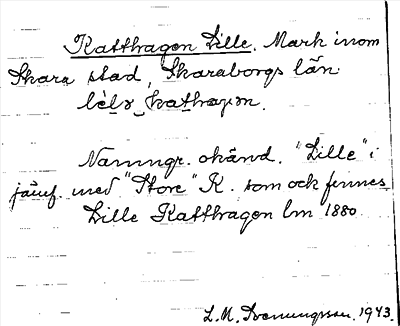 Katthagen Lille. Mark inom
Skara stad, Skaraborgs län
Namngr. okänd. "Lille" i
jämf. med "Store" K. som ock finnes
Lille Katthagen lm 1880
L.M. Svenungsson. 1943.